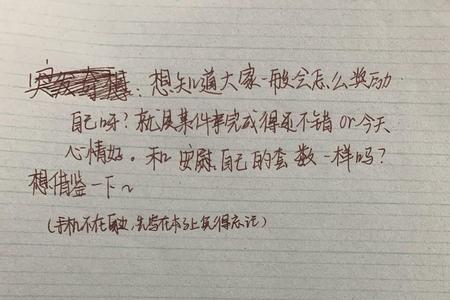 突发奇想:想知道大家一般会怎么奖励
自己呀?就是某件事完成得还不错 or 今天
心情好。和安慰自己的套数一样吗?
想借鉴一下~
(手机不在身边,先写在本子上免得忘记)